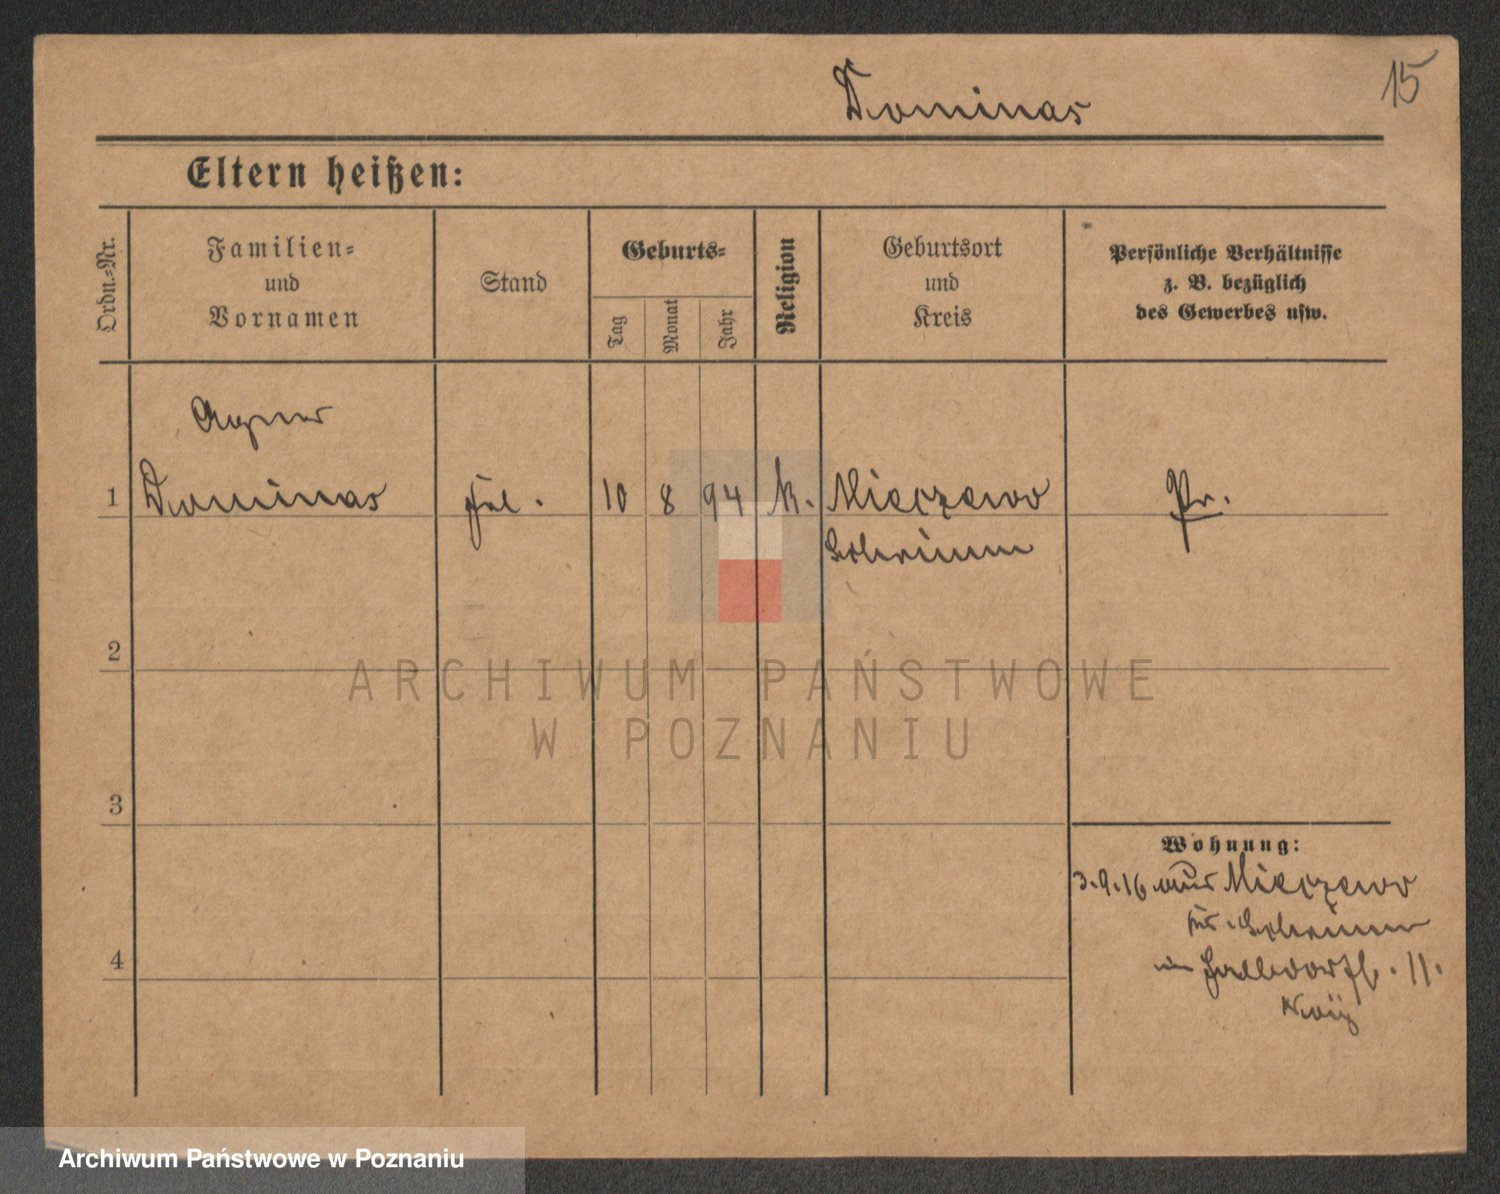 15
Dominas
Eltern heißen:
Ordn.-Nr.
Familien- und Vornamen
Stand
Geburts-
Tag
Monat
Jahr
Religion
Geburtsort und Kreis
Persönliche Verhältnisse z. B. bezüglich des Gewerbes usw.
Agnes
1 Dominas 10 8 94 k. Mieczewo Pr.
Schrimm
2
ARCHIWUM PAŃSTWOWE
W POZNANIU
3
Wohnung:
3.9.16 aus Mieczewo
Schrimm
11.
4
Archiwum Państwowe w Poznaniu